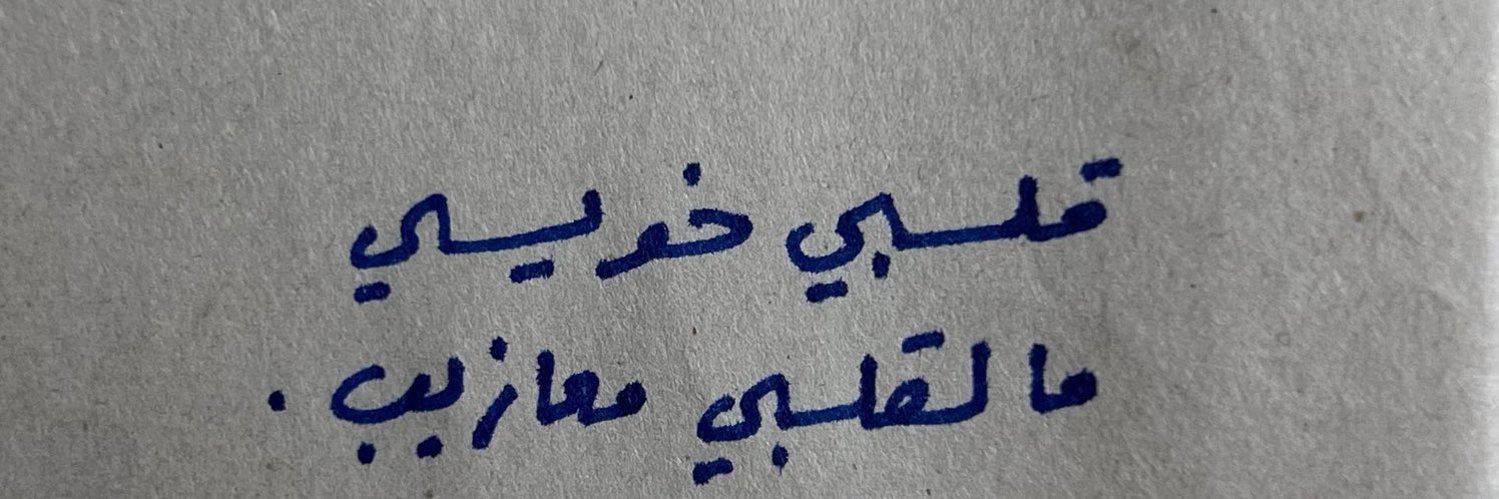 قلبي خويي
مالقلبي معازيب .